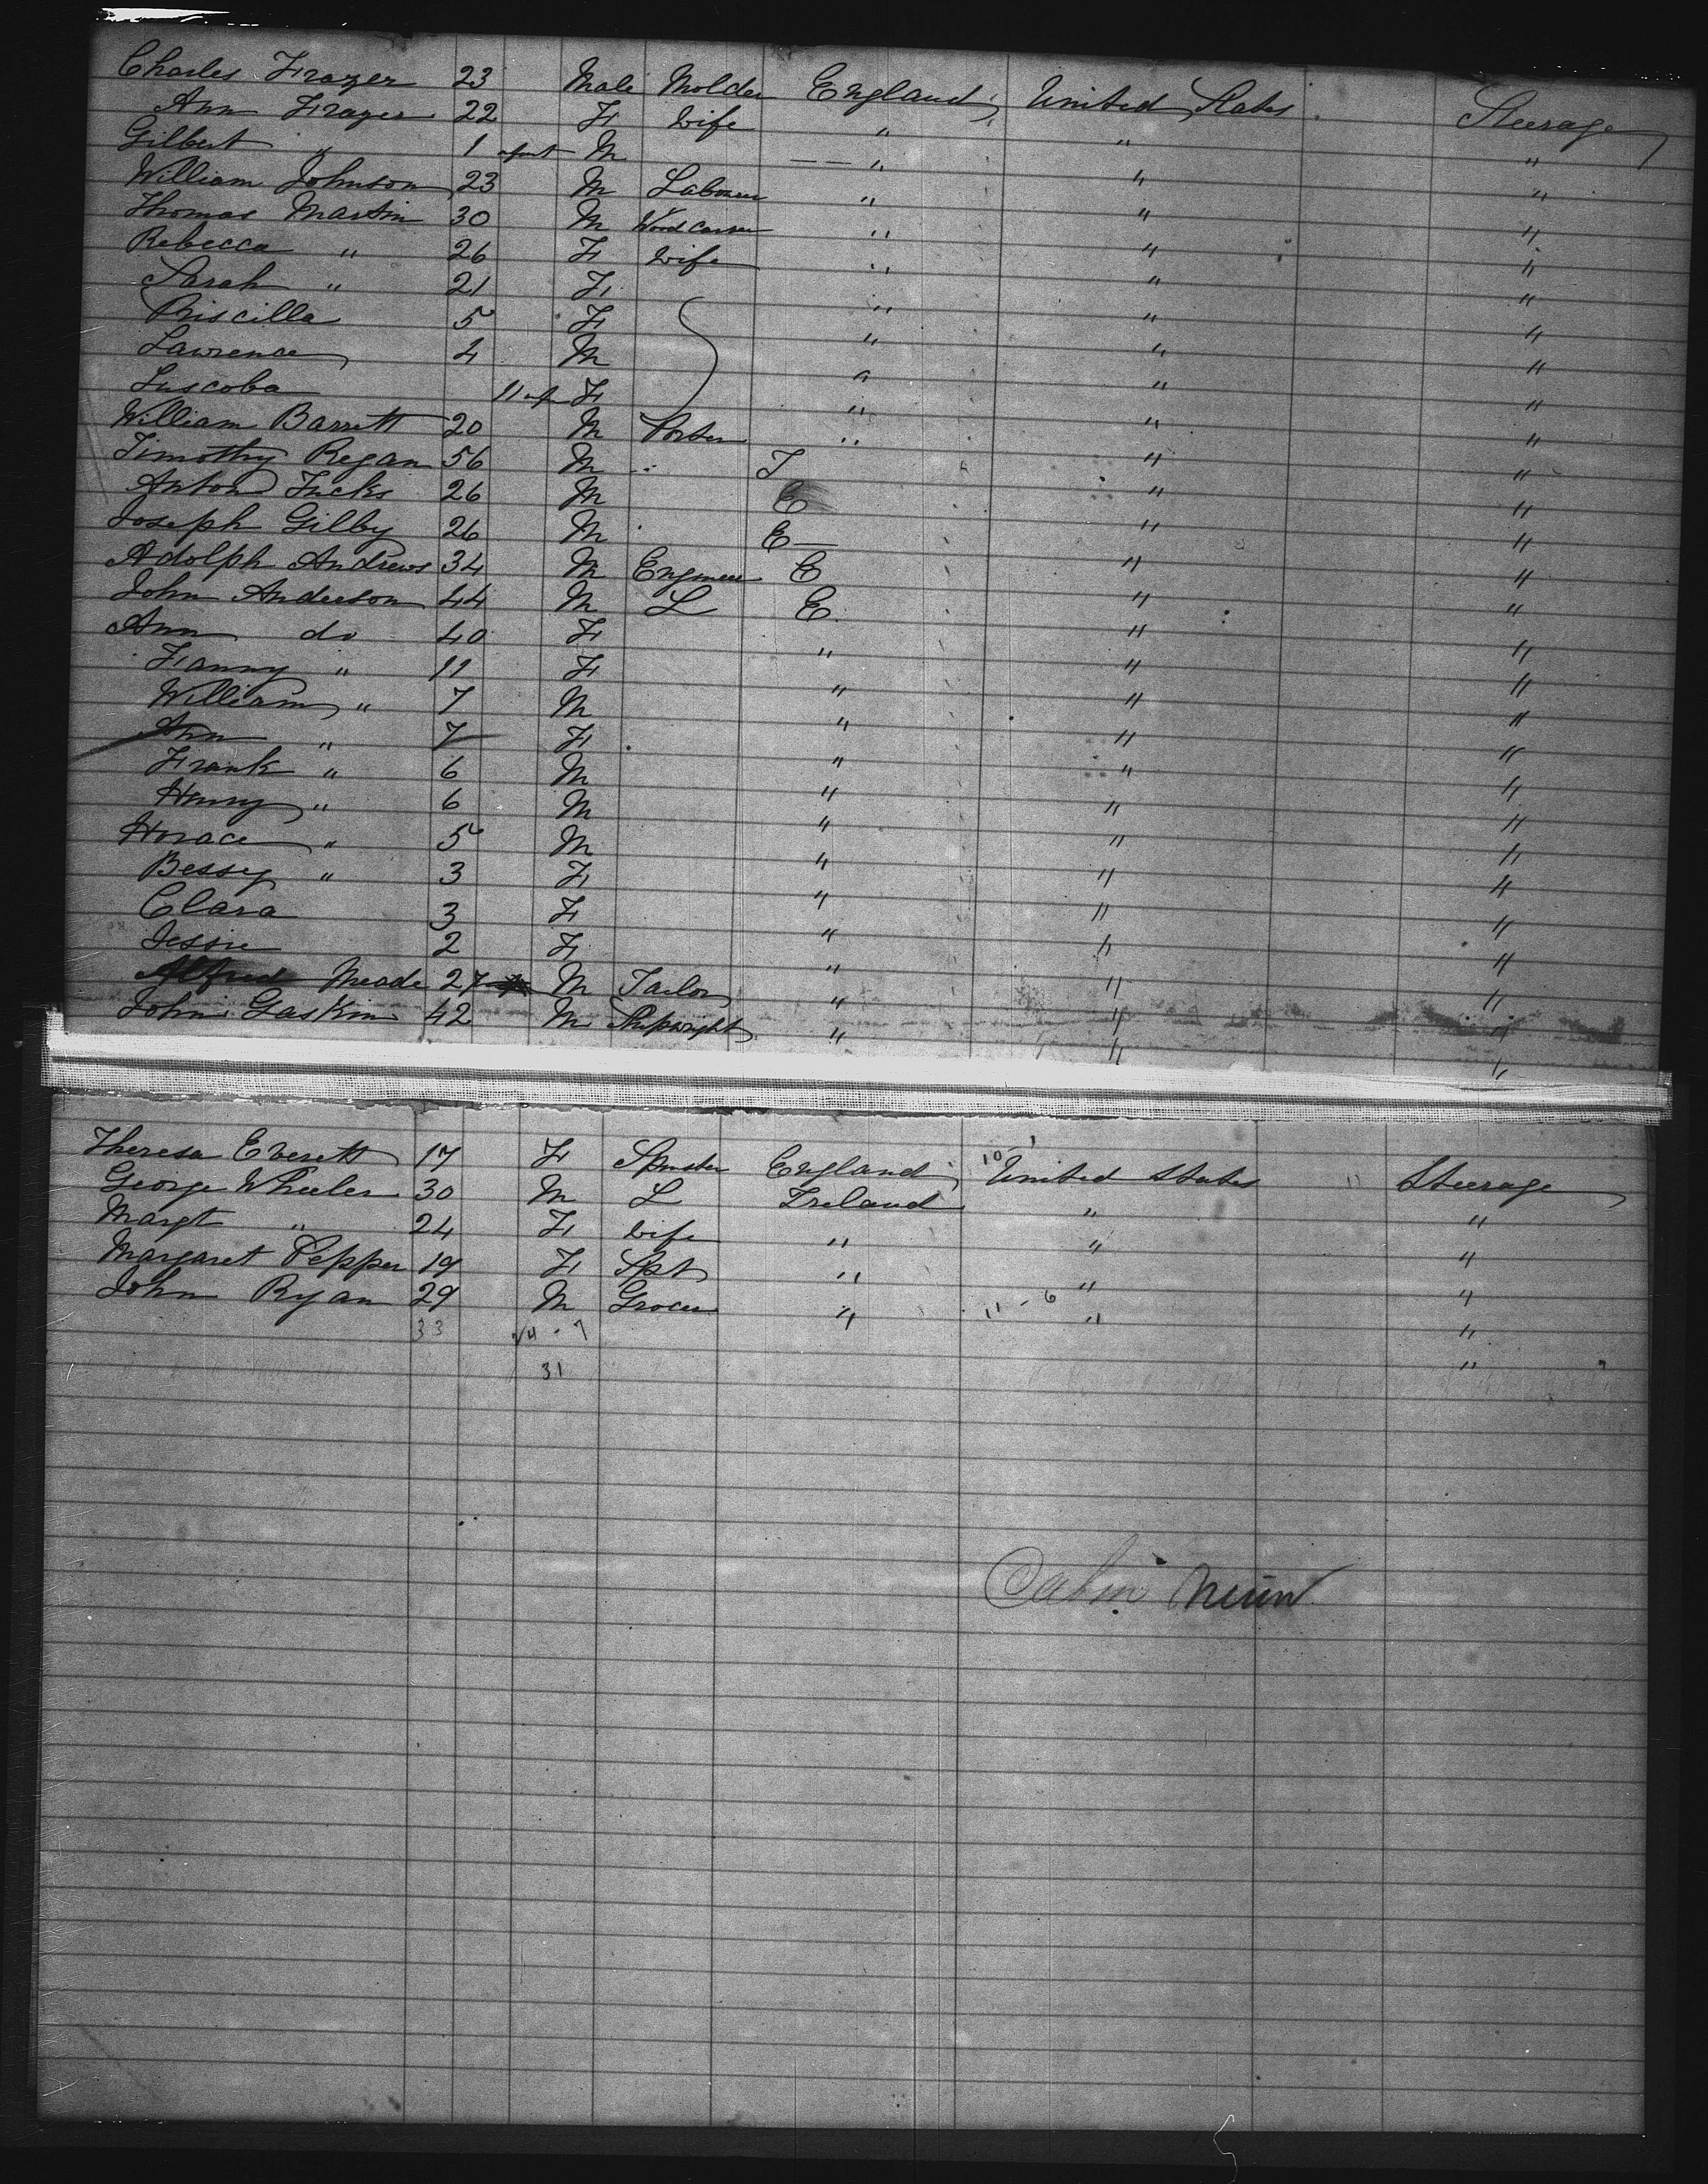 Charles Frazer 23 Male Molder England United States Steerage
Ann Frazer 22 F Wife " " "
Gilbert " 1 M " " "
William Johnson 23 M Labourer " " "
Thomas Martin 30 M Wood Carver " " "
Rebecca " 26 F Wife " " "
Sarah " 21 F " " "
Priscilla 5 F " " "
Lawrence 4 M " " "
11 F " " "
William Barrett 20 M Porter " " "
Timothy Regan 56 M " I " "
Anton Fucks 26 M E " "
Joseph Gilby 26 M E — " "
Adolph Andrews 34 M Engineer E " "
John Anderson 44 M L E " "
Ann do 40 F " " "
Fanny " 11 F " " "
William " 7 M " " "
Ann " 7 F " " "
Frank " 6 M " " "
Henry " 6 M " " "
Horace " 5 M " " "
Bessey " 3 F " " "
Clara 3 F " " "
Jessie 2 F " " "
Alfred Meade 27 M Tailor " " "
John Gaskin 42 M Shipwright " " "
Theresa Everett 17 F Spinster England 10 United States " Steerage
George Wheeler 30 M L Ireland " "
Margt " 24 F Wife " " "
Margaret Pepper 19 F Spt " " "
John Ryan 29 M Grocer " 11 - 6 " "
33 "
31
Cabin